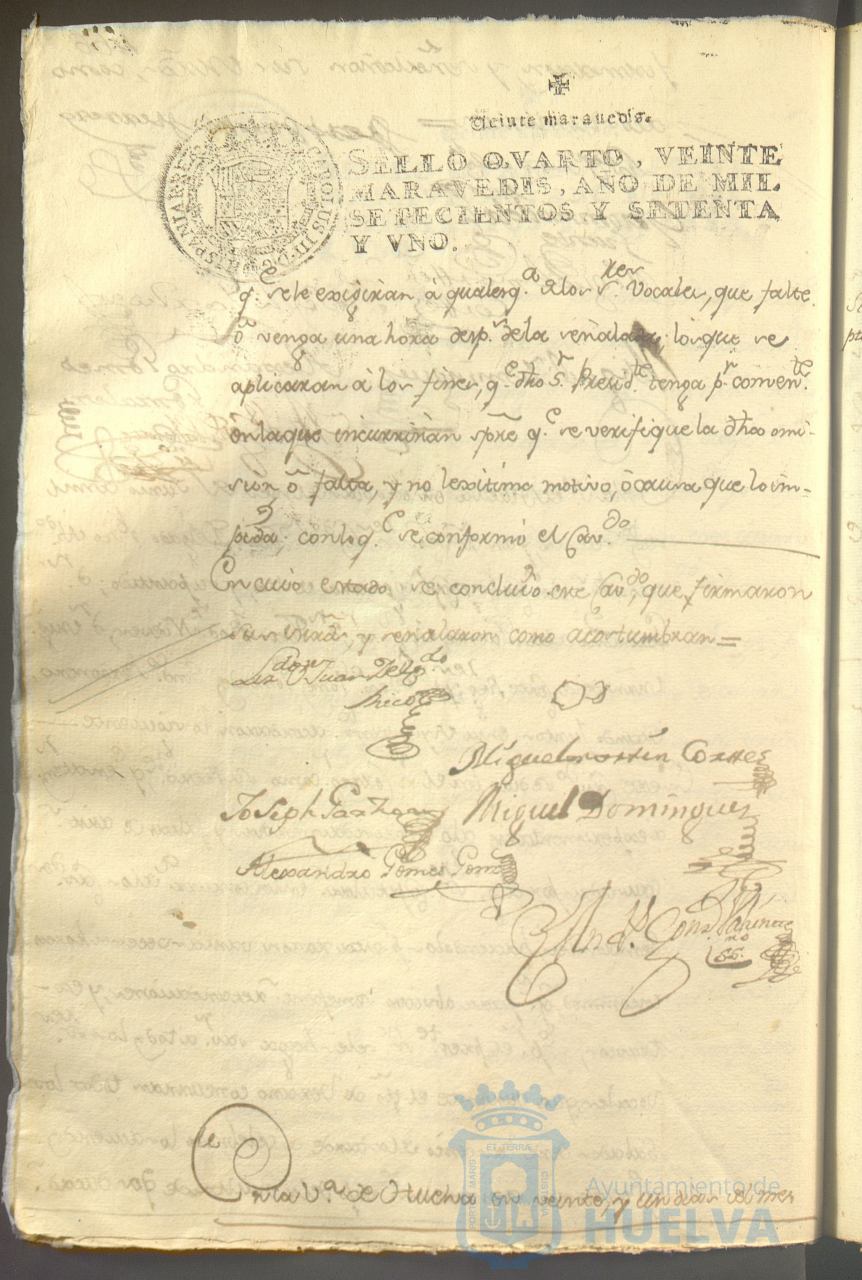 Veinte maravedis.
SELLO QVARTO, VEINTE
MARAVEDIS, AÑO DE MIL
SETECIENTOS Y SETENTA
Y VNO.
CAROLUS III D. G. HISPANIAR. REX
q.e se le exigirán á qualesq.a de los s.res Vocales, que falte
ó venga una hora desp.s de la señalada; los que se
aplicaran á los fines, q.e dho S.r Presid.te tenga p.r conven.te
en la que incurrirán spre q.e se verifique la dha omi-
sion ó falta, y no lexitimo motivo, ó causa que lo im-
pida; con lo q.e se conformó el Cav.do
En cuio estado se concluió este Cav.do, que firmaron
sus mrds, y señalaron como acostumbran =
Juan Delg.do
Rico
Miguel martin Cortes
Joseph Miguel Dominguez
Alexandro Gomes
And.s Gonz.
En la V.a de Huelva en veinte y un dias del mes
PORTUS MARIS ET TERRÆ CUSTODIA
Ayuntamiento de
HUELVA